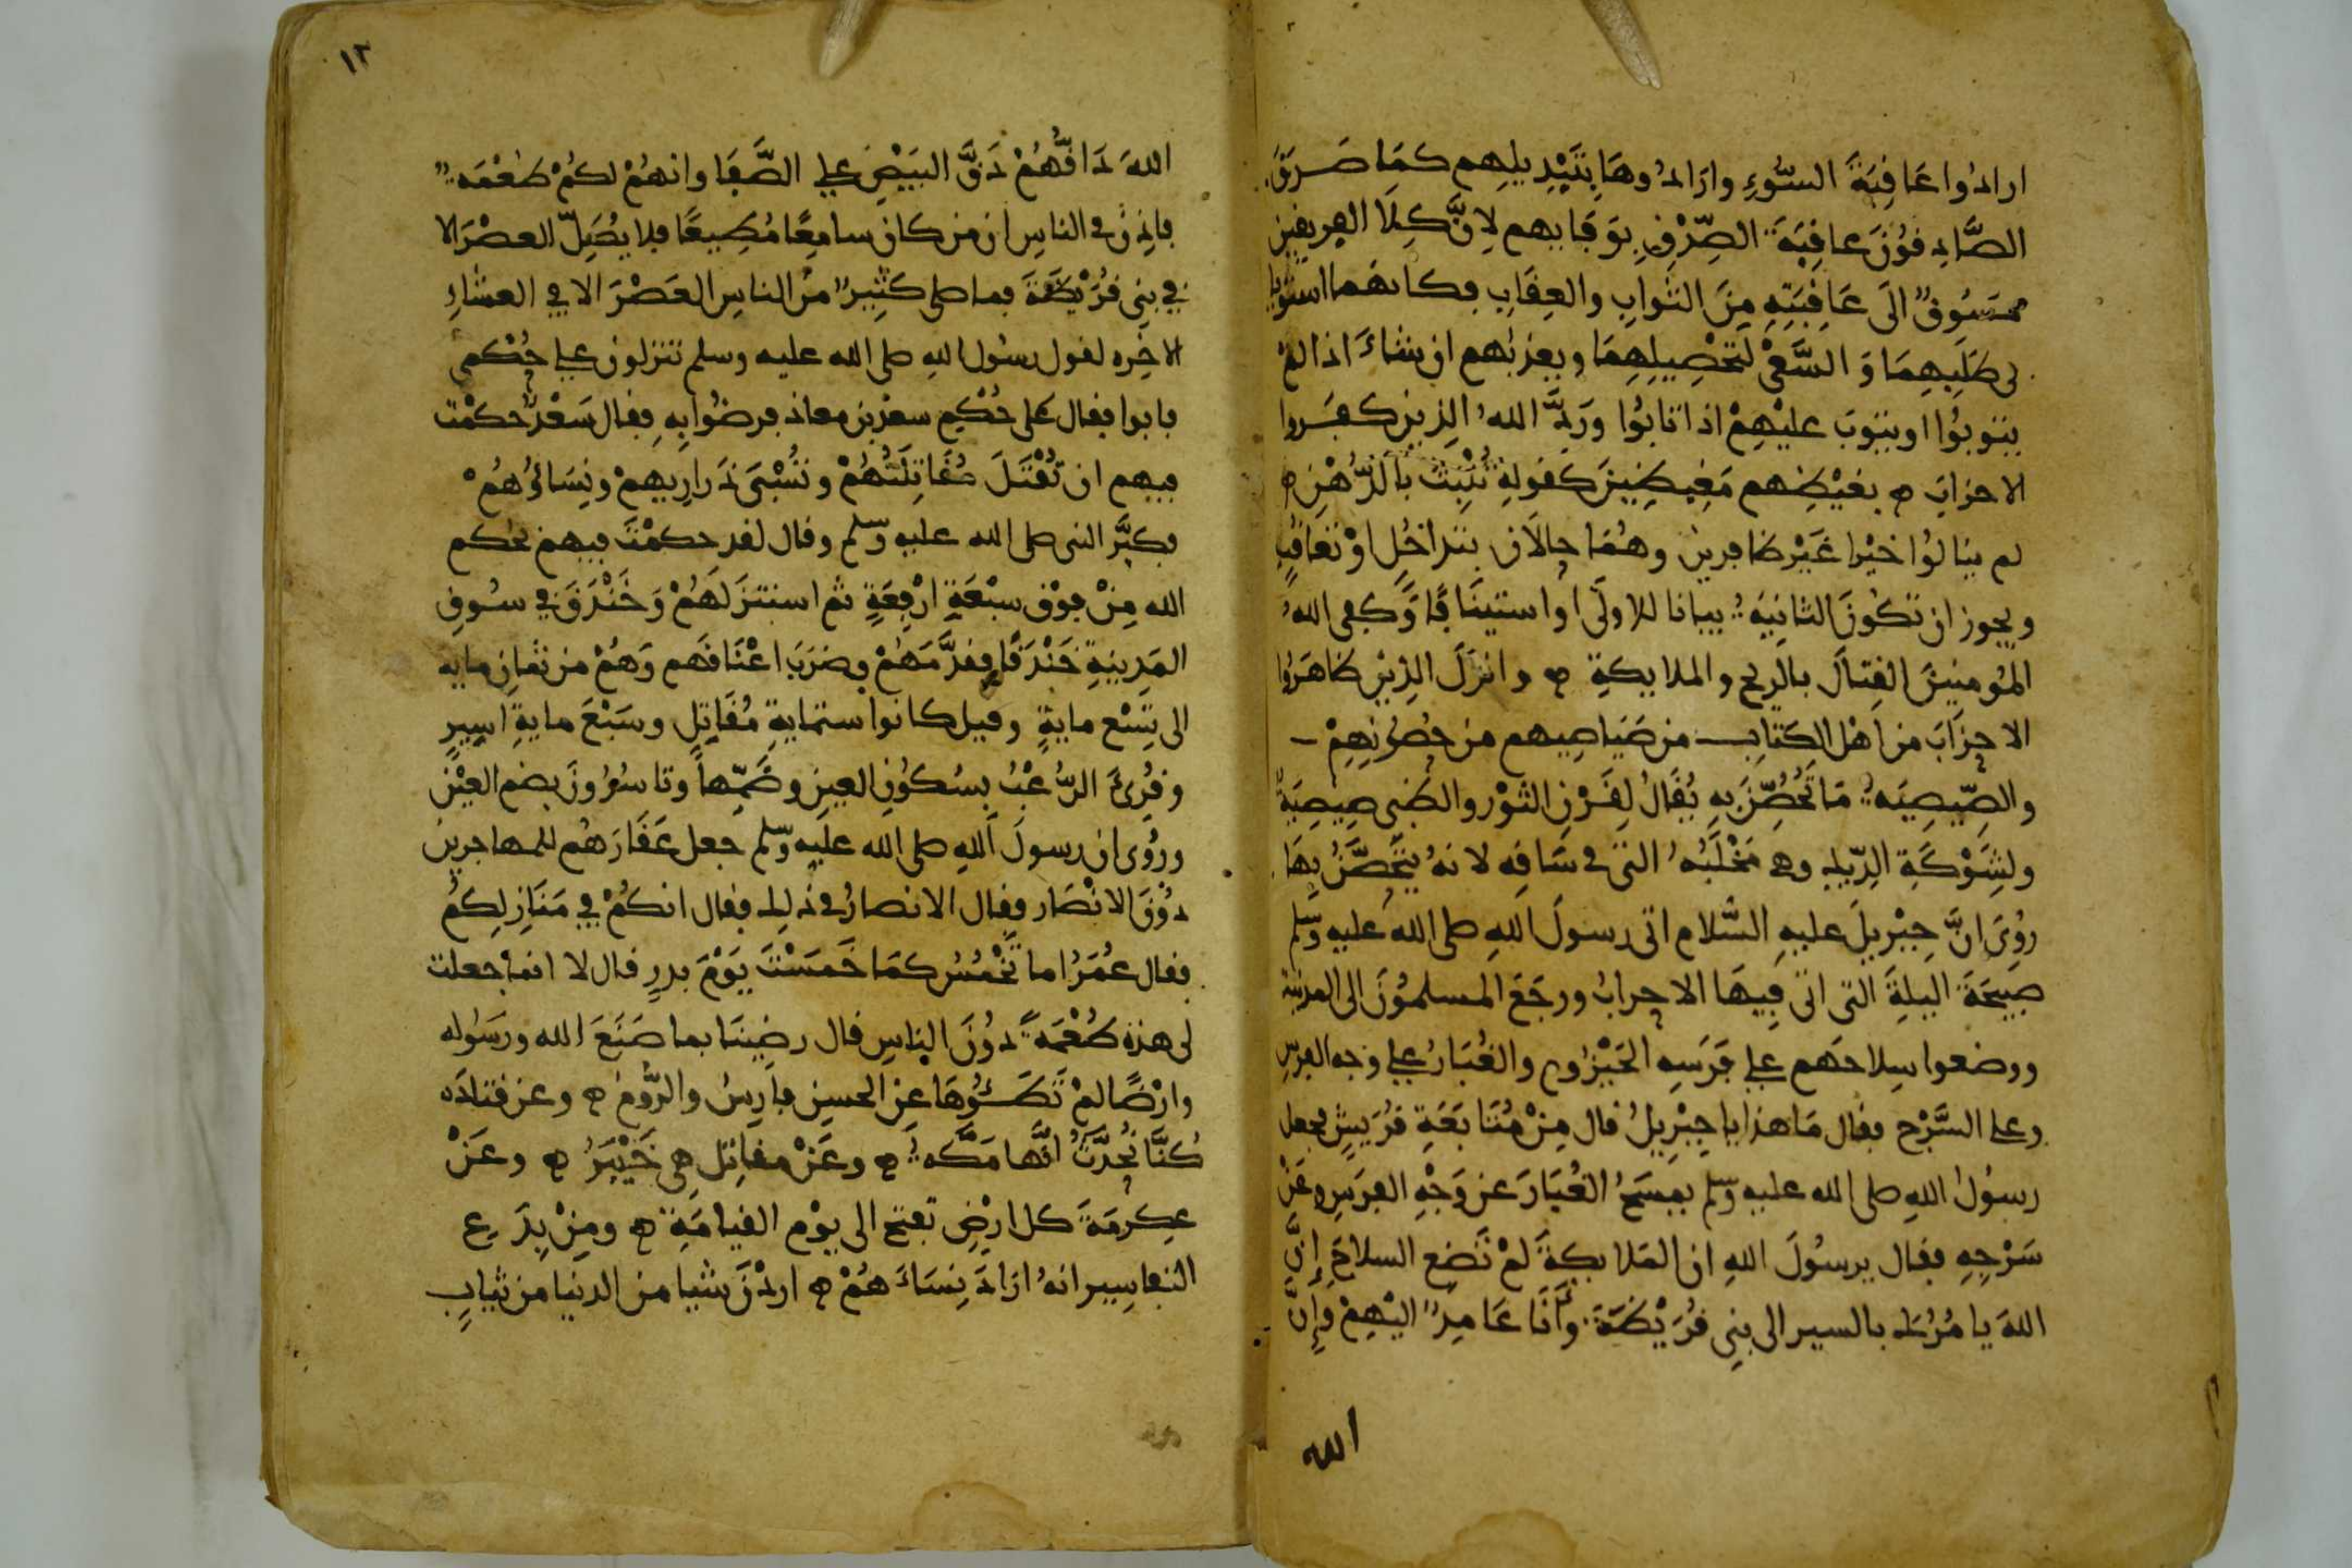 ارادُوا عَاقِبَةَ السُّوءِ وارَادُوهَا بِتَبْدِيلِهِم كمَا صَدَقَ
الصَّادِقُونَ عاقِبَةَ الصِّدْقِ بوَفَايهم لِأنَّ كِلَا الفريقين
مسُوقٌ الَى عَاقِبَتِهِ مِنَ الثوابِ والعِقَابِ فكانهما استويا
فى طَلَبِهِمَا وَالسَّعْىِ لتَحْصِيلِهِمَا ويعذبهم ان شاءَ اذا لمْ
يتوبُوا اويتوبَ عليْهِمْ اذا تابُوا ورَدَّ اللهُ الذين كفَروا
الاحزابَ ه بغيْظِهم مَغِيظِينَ كقولهِ تُنْبِتُ بالدُّهْنِ ه
لم ينالُوا خيْرا غَيْرَ ظافرين وهُمَا حالَان بتداخُلٍ اوْ تعاقُبٍ
ويجوز ان تكُونَ الثانِيَةُ بيانا للاولَى او استينَافًا وَكفى اللهُ
المُومنينَ القِتالَ بالريح والملايكةِ ه وانزلَ الذِينَ ظاهَرُوا
الاحزابَ من اهْلِ الكِتابِ من صَيَاصِيهم من حُصُونِهِمْ
والصِّيصِيَةُ مَا تُحُصِّنَ بِهِ يُقَالُ لِقَرْنِ الثوْر والظبى صِيصِيَةٌ
ولشَوْكَةِ الدِّيكِ وهى مَخْلَبُهُ التى فى سَاقِهِ لانهُ يتحَصَّنُ بهَا
رُوِىَ انَّ جِبْرِيلَ عليهِ السَّلام اتى رسولَ اللهِ صلى الله عليه وسلم
صبيحَةَ اليلةَ التى اتى فِيهَا الاحزابُ ورجَعَ المسلمُونَ الى المدينة
ووضعوا سِلاحَهم على فرَسِهِ الحَيْزُوم والغُبَارُ على وجه الفرس
وعلى السَّرْج فقال مَا هذا يا جِبْرِيلُ قال مِنْ مُتَابَعَةِ قُرَيشٍ فجعل
رسولُ اللهِ صلى الله عليه وسلم يمسَحُ الغُبَارَ عن وَجْهِ الفرَسِ وعَنْ
سَرْجِهِ فقال يرسُولَ اللهِ ان المَلايكةَ لمْ تَضعِ السلاحَ إنَّ
اللهَ يامُرُكَ بالسير الى بنِى قُرَيْظةَ وأَنَا عَامِدٌ اليْهِمْ وإنَّ
الله
١٢
اللهَ دَاقُّهُمْ دَقَّ البَيْضِ على الصَّفَا وانهُمْ لكُمْ طُعْمَةٌ
فاذِّنْ فى الناسِ ان من كان سامِعًا مُطِيعًا فلا يصَلِّ العصْرَ الا
فى بنِى قُرَيْظةَ فما صلى كثِيرٌ منَ الناسِ العَصْرَ الا فى العشاءِ
الاخِره لقول رسُول اللهِ صلى الله عليه وسلم تنزلون على حُكْمى
فابوا فقال على حُكْمِ سعد بن معاذ فرضُوا بِهِ فقال سَعْدٌ حكمْت
فيهم ان تُقْتَلَ مُقَاتِلَتُهُمْ وتُسْبَى ذَرارِيهِمْ ونِسَائُهُمْ
فكبَّر النبى صلى الله عليه وسلم وقال لقد حكمْتَ فيهم بحكم
الله مِنْ فوْق سبْعَةِ ارْقِعَةٍ ثم استنزَلهُمْ وَخَنْدَقَ فى سُوقِ
المَدِينةِ خَنْدَقًا فقدَّمَهُمْ وضرَبَ اعْنَاقَهم وَهُمْ من ثمانِ مايه
الى تِسْعِ مايةٍ وقيل كانوا ستمايةِ مُقَاتِلٍ وسَبْعَ مايةِ اسِيرٍ
وقُرِئَ الرُّعْبُ بِسُكُونِ العينِ وضَمِّهَا وتاسُرُونَ بضم العيْن
ورُوِى ان رسولَ اللهِ صلى الله عليه وسلم جعل عَقَارَهُم للمهاجرين
دُونَ الانْصَار فقال الانصارُ فى ذلك فقال انكُمْ فى مَنَازِلِكُمُ
فقال عُمَرُ اما تُخْمِسُ كمَا خَمَسْتَ يَوْمَ بدرٍ قال لا انما جعلت
لى هذه طُعْمَةً دُونَ الناسِ قال رضِينَا بما صَنَعَ الله ورَسُوله
وارْضًا لمْ تَطَئُوهَا عن الحسنِ فارِسُ والرُّومُ ه وعن قتادَه
كُنَّا نُحَدَّثُ انَّهَا مَكَّهُ ه وعَنْ مقاتِل هى خَيْبَرُ ه وعَنْ
عِكرمَةَ كل ارْضٍ تفتح الى يوْم القيامَةِ ه ومِنْ بِدَعِ
التفاسِير انهُ ارَادَ نِسَاءَهُمْ ه اردْنَ شيا من الدنيا من ثيابٍ